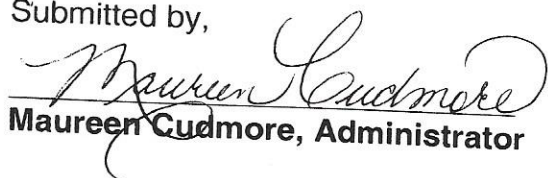 Submitted by,
Maureen Cudmore
Maureen Cudmore, Administrator